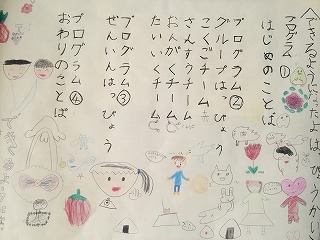 今できるようになったよ はっぴょうかい
プログラム①
はじめのことば
プログラム②
グループはっぴょう
こくごチーム
さんすうチーム
おんがくチーム
たいいくチーム
プログラム③
ぜんいんはっぴょう
プログラム④
おわりのことば